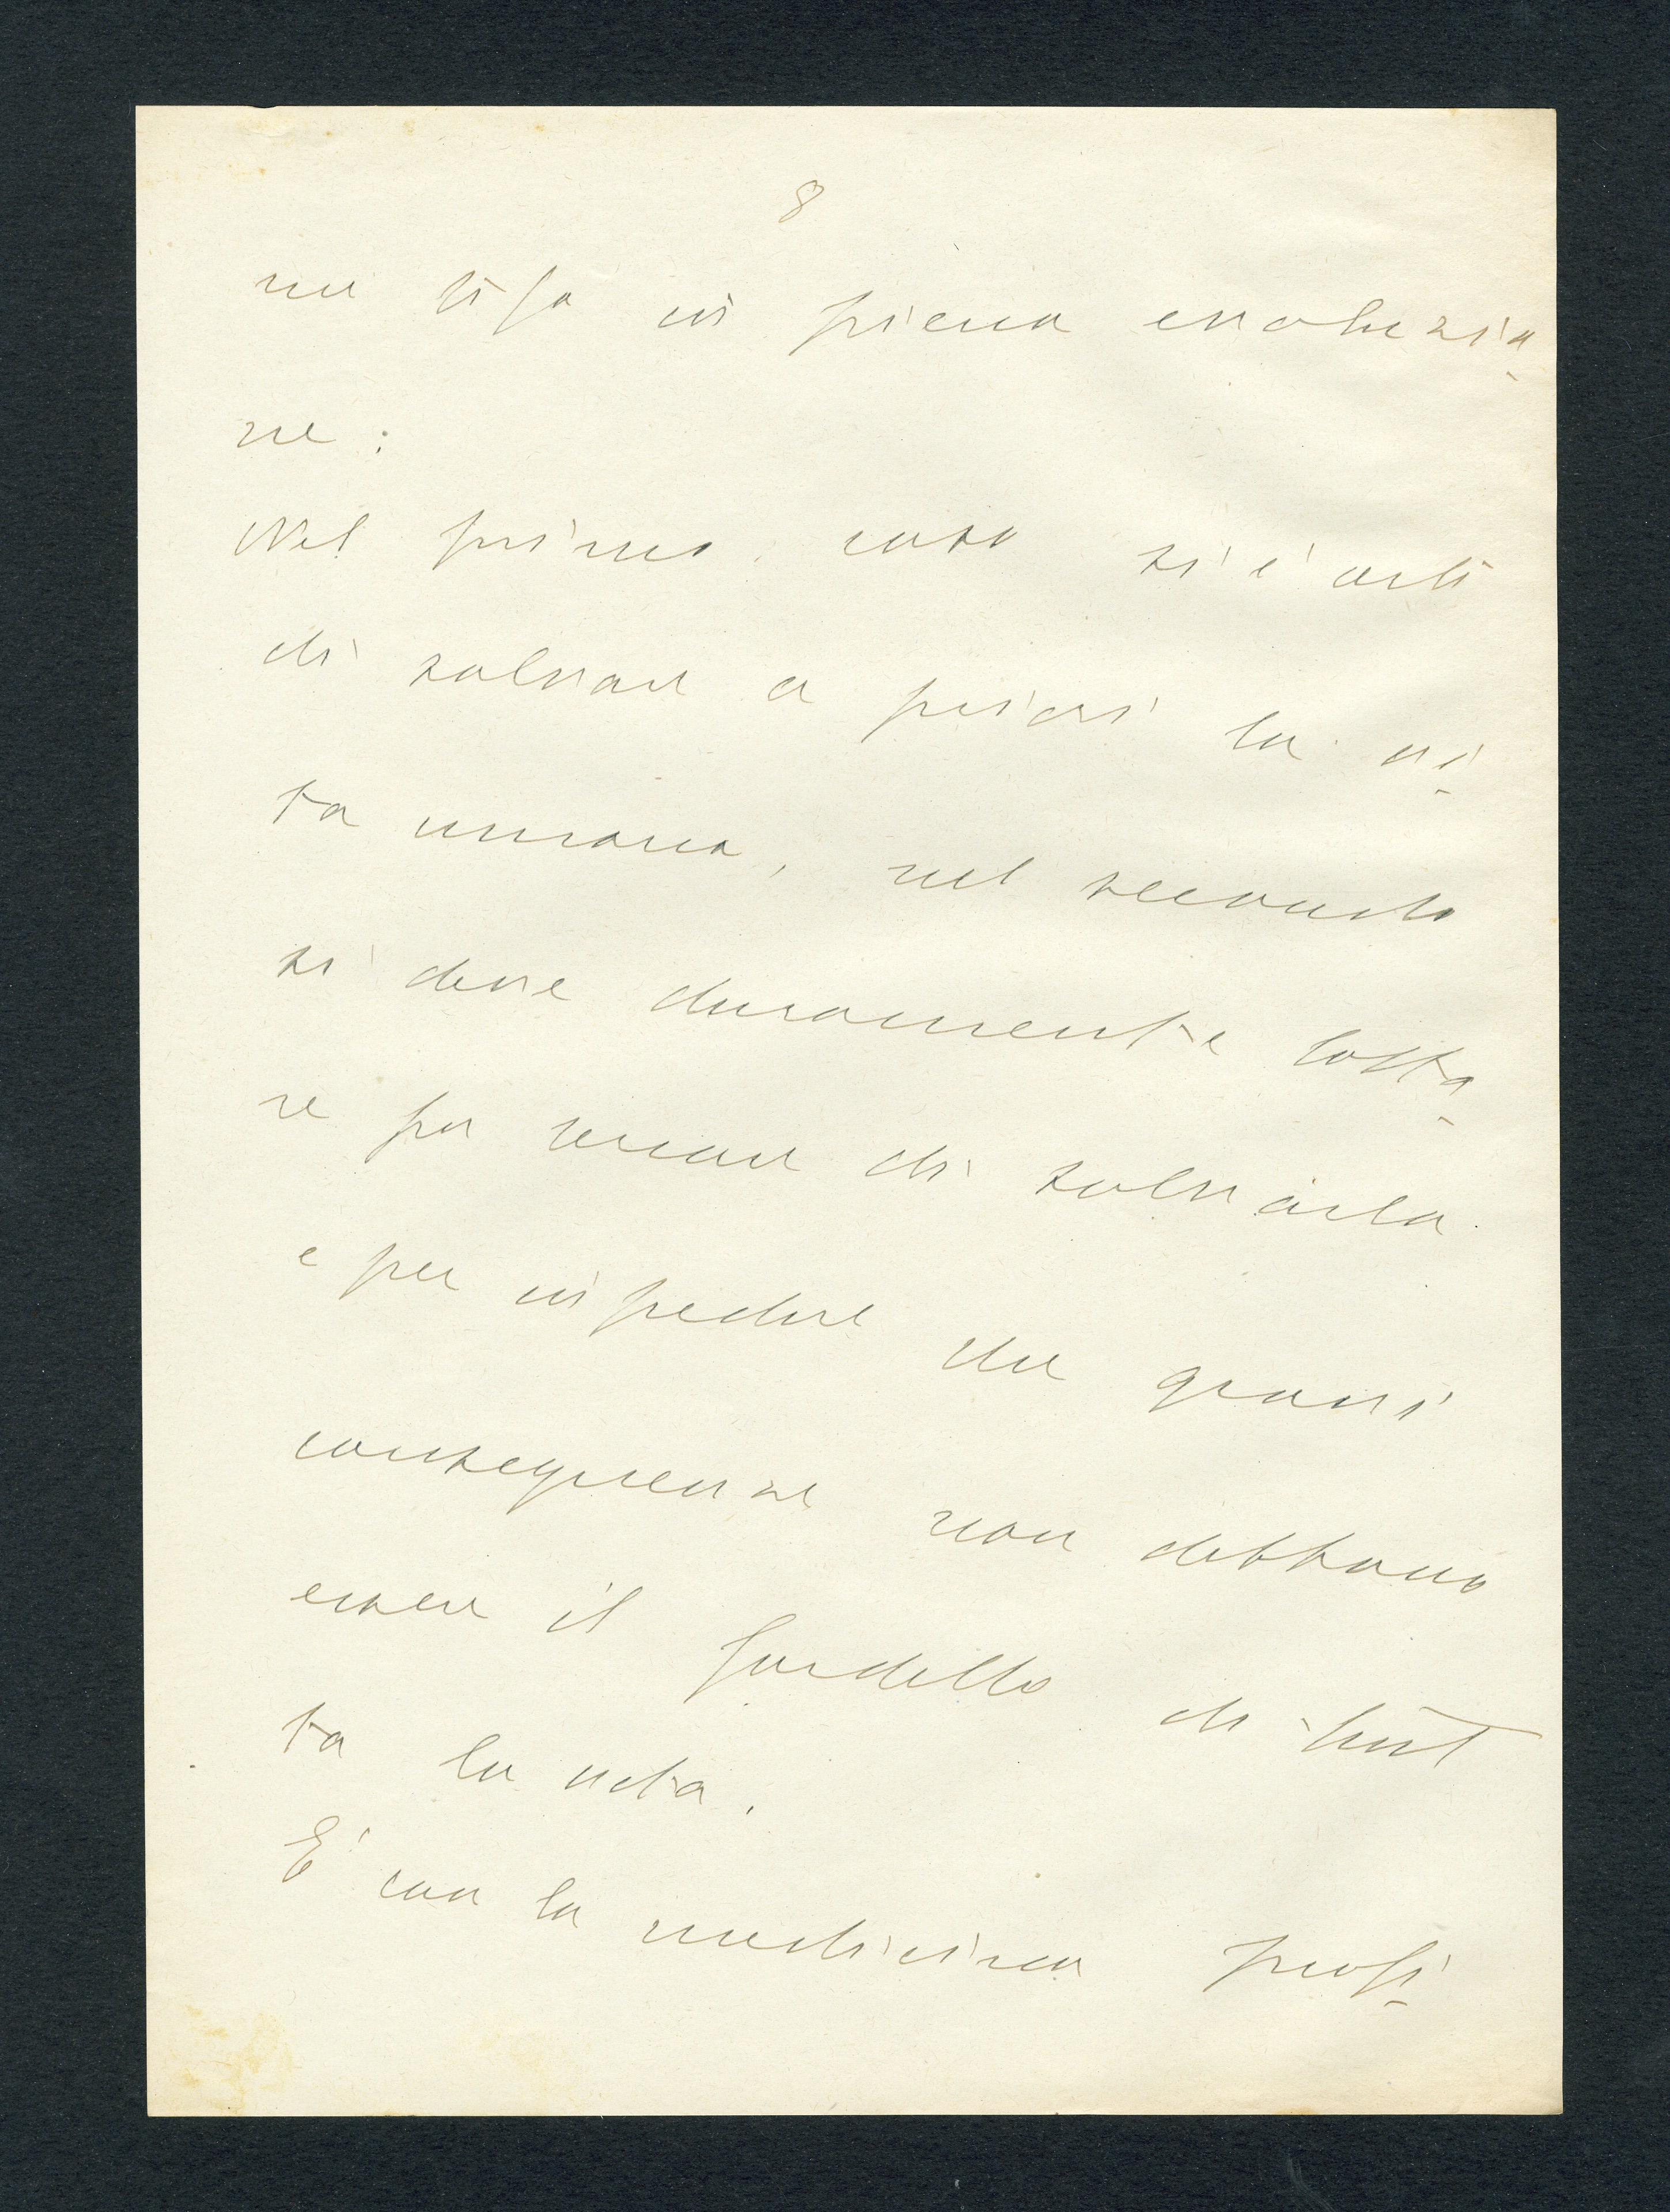 8
un tifo in piena evoluzio-
ne:
Nel primo caso si è certi
di salvare a priori la vi-
ta umana, nel secondo
si deve duramente lotta-
re per cercare di salvarla
e per impedire che gravi
conseguenze non debbano
essere il fardello di tut
ta la vita.
E' con la medicina profi-